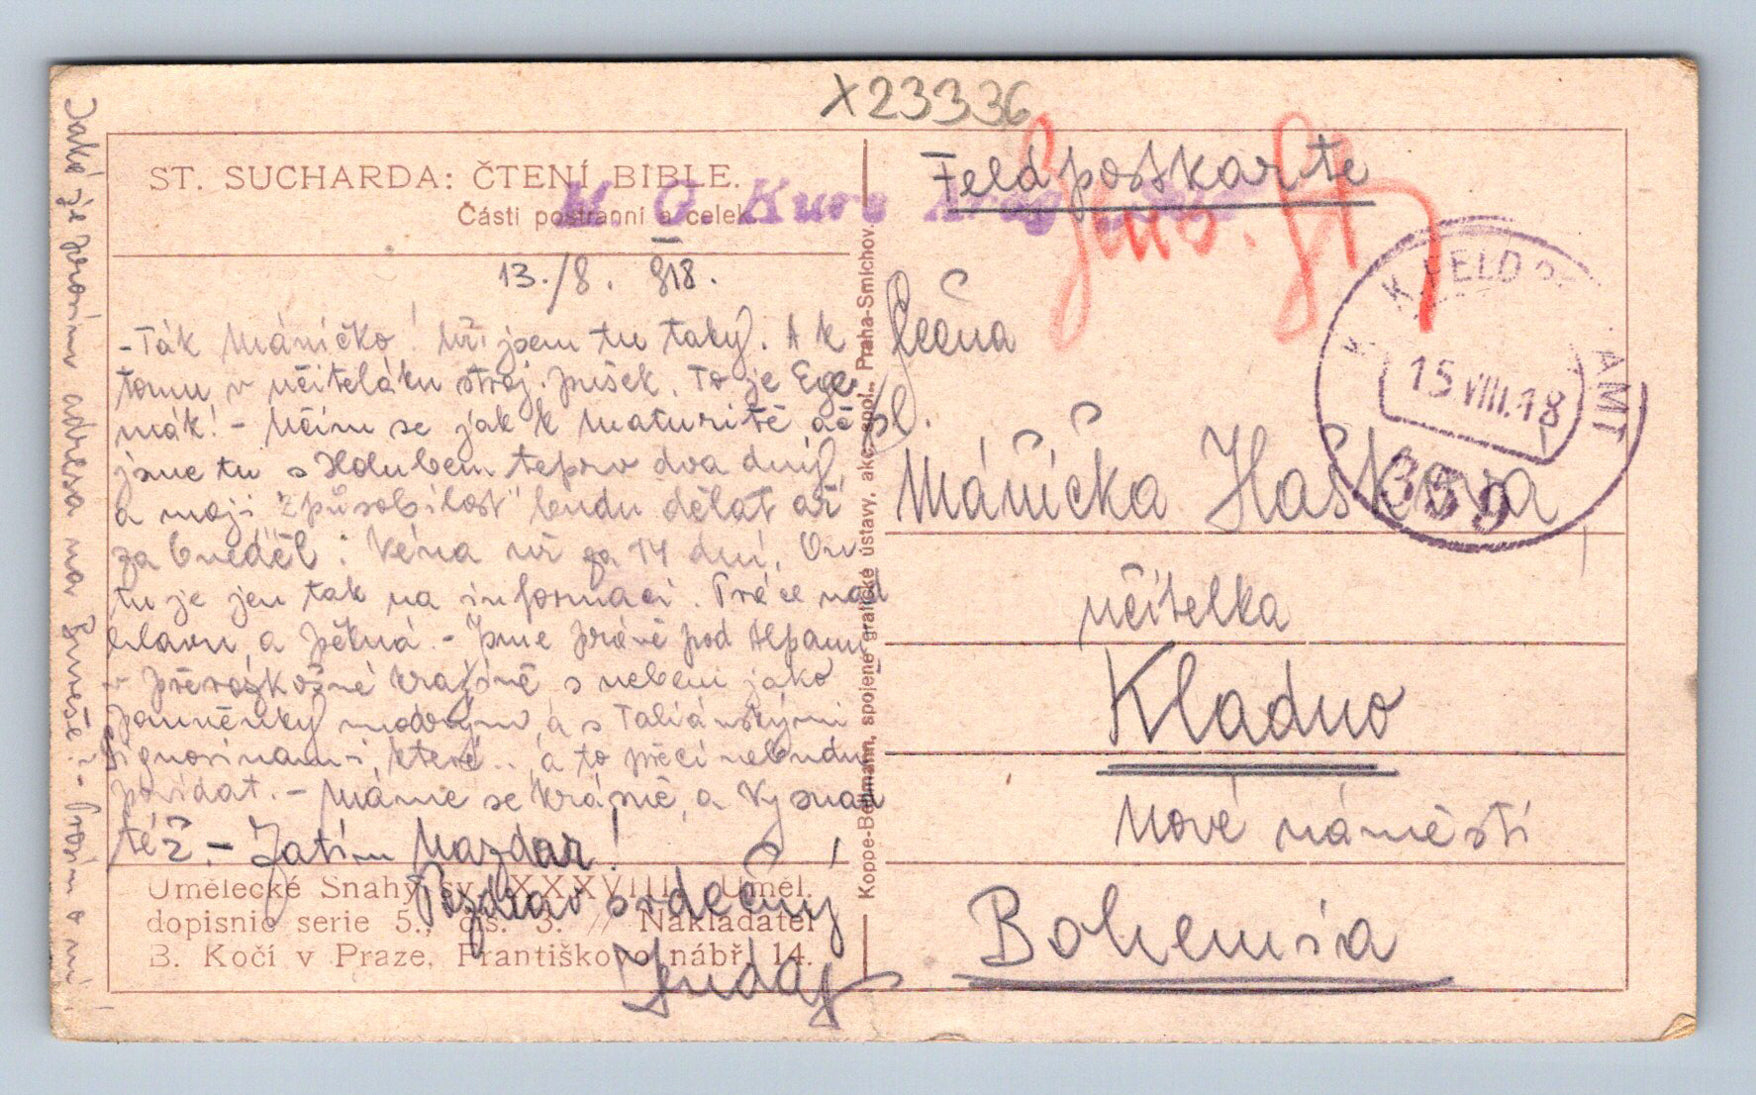 X23336
ST. SUCHARDA: ČTENÍ BIBLE.
Části postranní a celek.
M. G. Kurs
13./8. 818.
-Ták Máničko! Už jsem tu taky. A k
tomu v učiteláku stroj. pušek. To je
mák! - Učím se jak k maturitě ač
jsme tu s Holubem teprv dva dny
a moji "způsobilost" budu dělat až
za týden: Véna už za 14 dní. On
tu je jen tak na informaci. Práce nad
hlavu, a pěkná. - Jsme právě pod Alpami
v přerozkošné krajině s nebem jako
pomněnky modrým, a s Taliánskými
signorinami, které .. a to přeci nebudu
povídat. - Máme se krásně, a Vy snad
též. - Zatím Nazdar!
Pozdrav srdečný
Jenda
Jaká je prosím adresa na
Prosím o ni!
Umělecké Snahy sv. XXXVIII. Uměl.
dopisnic serie 5., čís. 3. // Nakladatel
B. Kočí v Praze, Františkovo nábř. 14.
Koppe-Bellmann, spojené grafické ústavy, akc. spol., Praha-Smíchov.
Feldpostkarte
K. K. FELDPOSTAMT
15 VIII. 18
sl.
Mánička Haškova
učitelka
Kladno
Nové náměstí
Bohemia